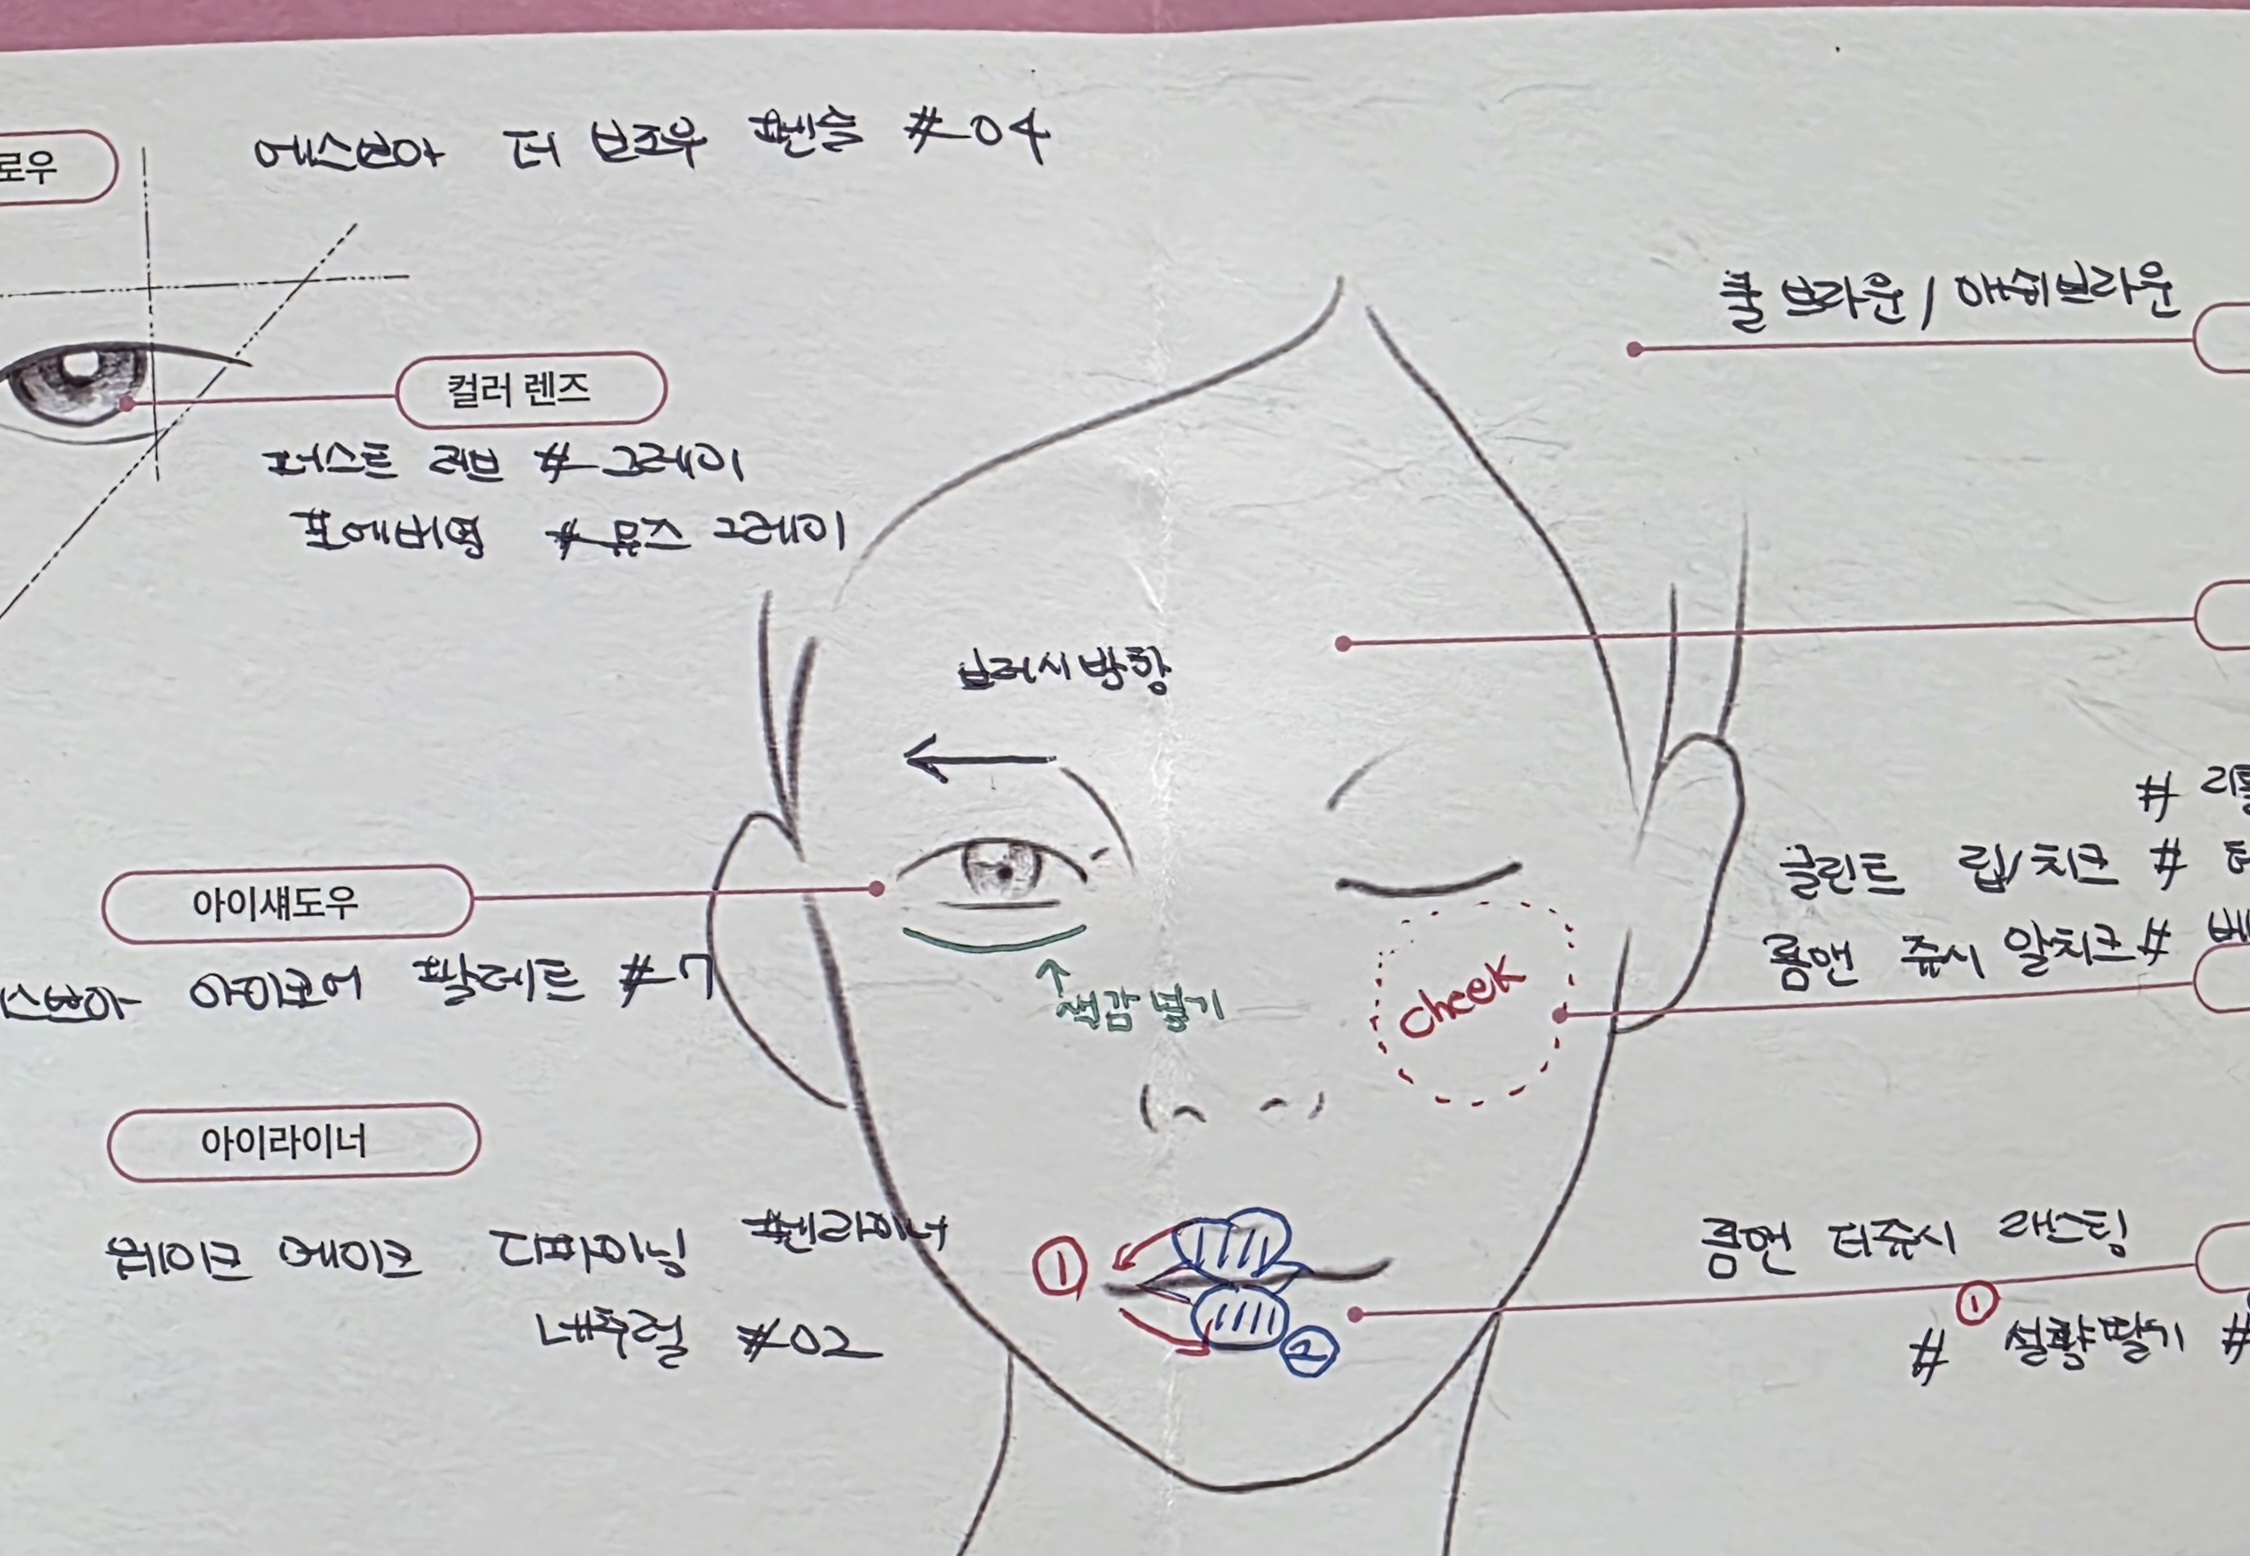 로우
에스쁘아 더 브로우 펜슬 #04
쿨 브라운 / 애쉬브라운
컬러 렌즈
퍼스트 러브 # 그레이
포에버영 # 뮤즈 그레이
브러시 방향
#
아이섀도우
글린트 립/치크 #
스쁘아 아이코어 팔레트 #7
롬앤 쥬시 알치크 # 베
Cheek
색감 넣기
아이라이너
웨이크 메이크 디파이닝 펜라이너
네추럴 #02
① ②
롬앤 더쥬시 래스팅
①
# 설향딸기 #